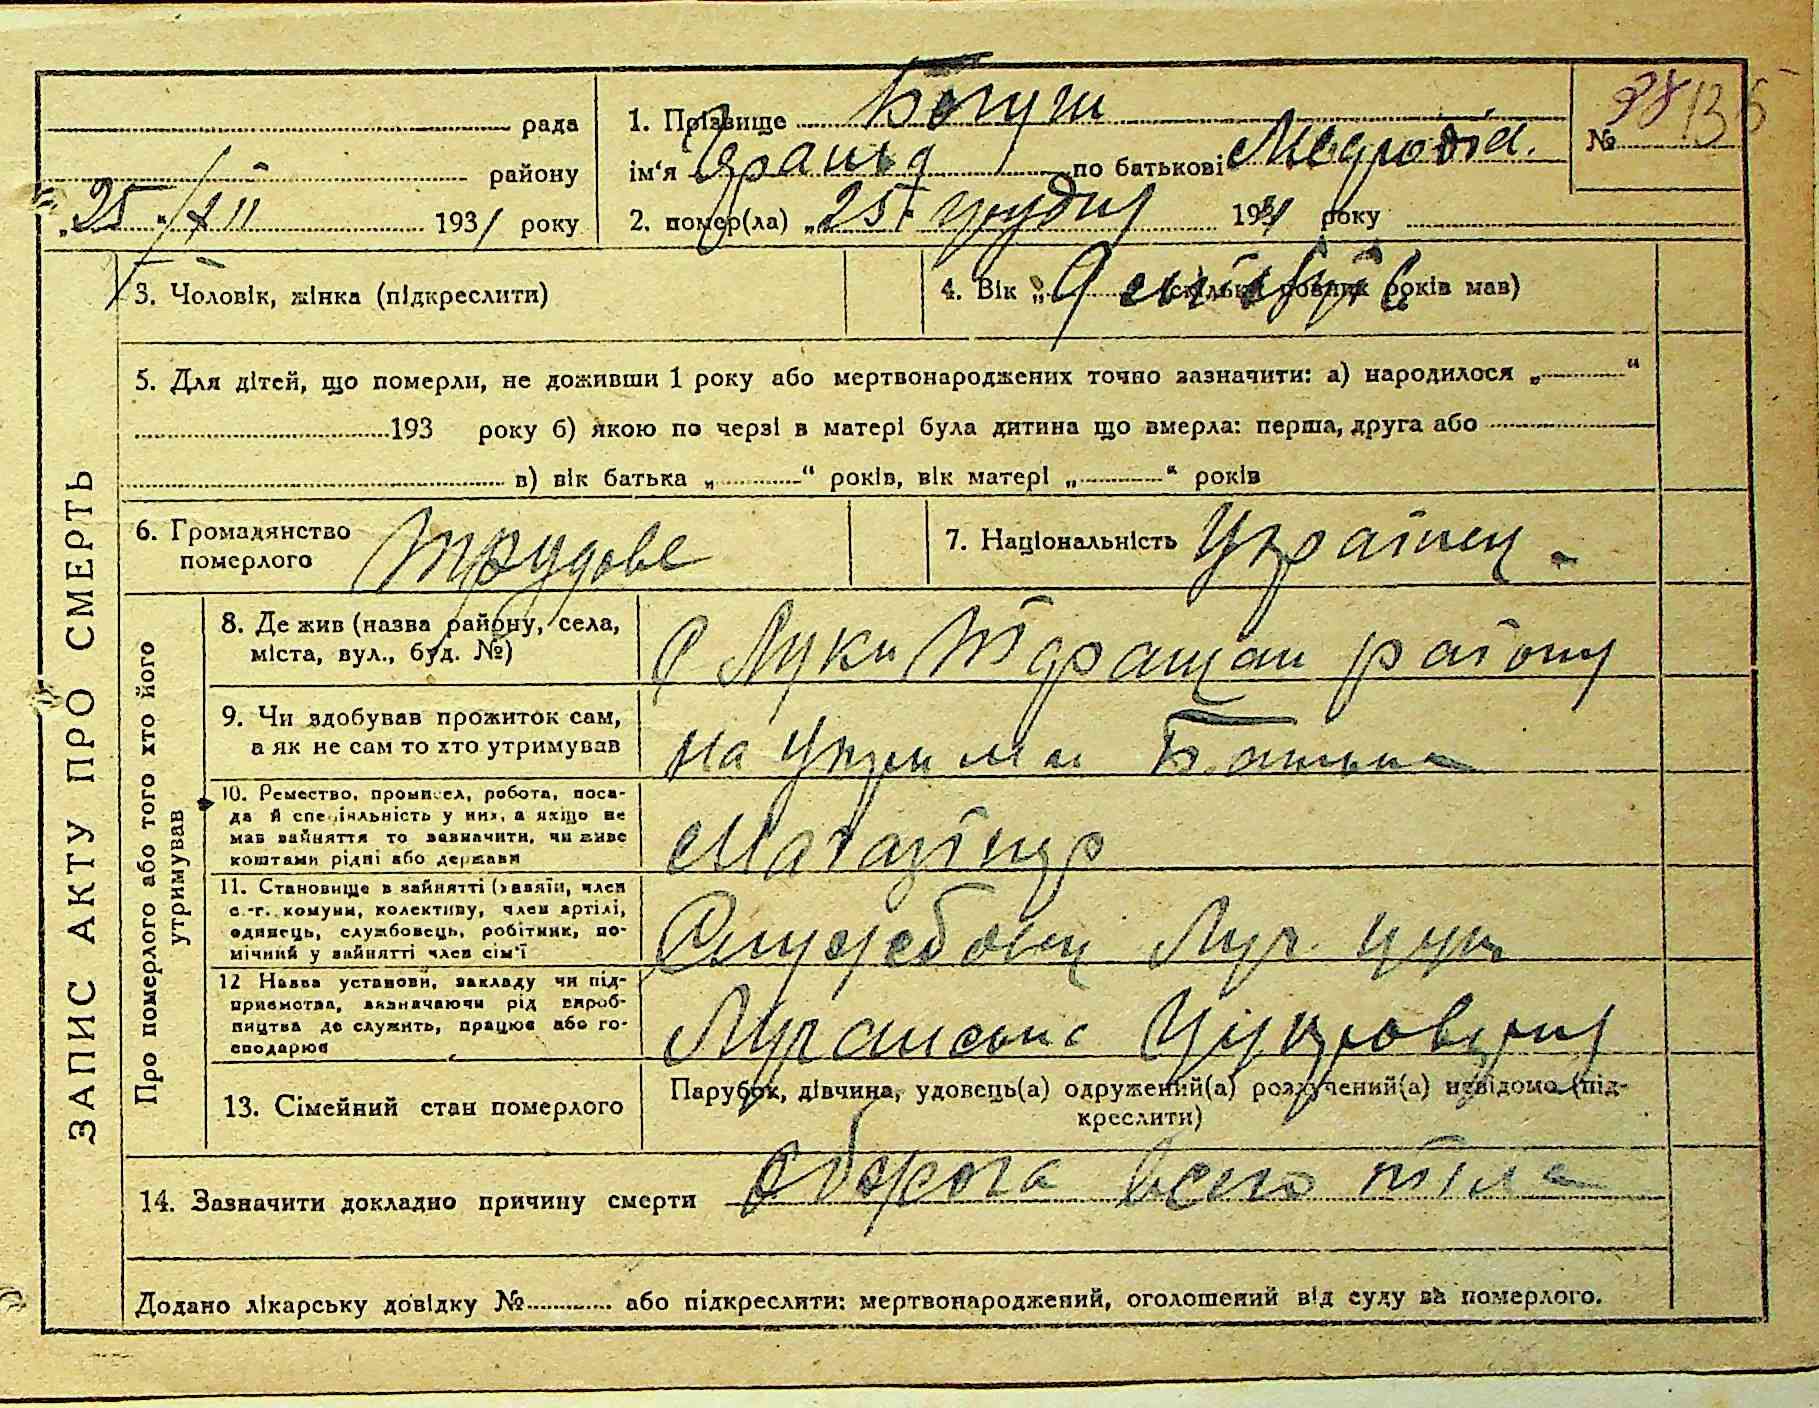 рада
району
„25" /XII 1931 року
1. Прізвище Богуш
ім'я по батькові
2. помер(ла) „25" грудня 1931 року
№ 98 135
ЗАПИС АКТУ ПРО СМЕРТЬ
3. Чоловік, жінка (підкреслити)
4. Вік „ (скільки повних років мав)
5. Для дітей, що померли, не доживши 1 року або мертвонароджених точно зазначити: а) народилося „ “
193 року б) якою по черзі в матері була дитина що вмерла: перша, друга або
в) вік батька „ “ років, вік матері „ “ років
6. Громадянство померлого Трудове
7. Національність Українец
Про померлого або того хто його утримував
8. Де жив (назва району, села,
міста, вул., буд. №)
с Луки району
9. Чи здобував прожиток сам,
а як не сам то хто утримував
на Батька
10. Ремество, промисел, робота, поса-
да й спеціяльність у них, а якщо не
мав зайняття то зазначити, чи живе
коштами рідні або держави
11. Становище в зайнятті (хазяїн, член
с.-г. комуни, колективу, член артілі,
одинець, службовець, робітник, по-
мічний у зайнятті член сім'ї
Службовец
12 Назва установи, закладу чи під-
приємства, зазначаючи рід вироб-
ництва де служить, працює або го-
сподарює
13. Сімейний стан померлого
Парубок, дівчина, удовець(а) одружений(а) розлучений(а) невідомо (під-
креслити)
14. Зазначити докладно причину смерти всего тіла
Додано лікарську довідку № або підкреслити: мертвонароджений, оголошений від суду за померлого.